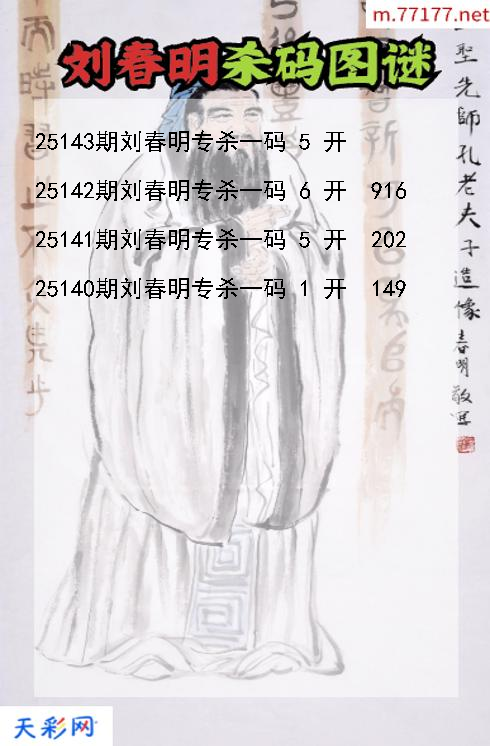 m.77177.net
刘春明杀码图谜
25143期刘春明专杀一码 5 开
25142期刘春明专杀一码 6 开 916
25141期刘春明专杀一码 5 开 202
25140期刘春明专杀一码 1 开 149
聖先師孔老夫子造像春明敬寫
天彩网